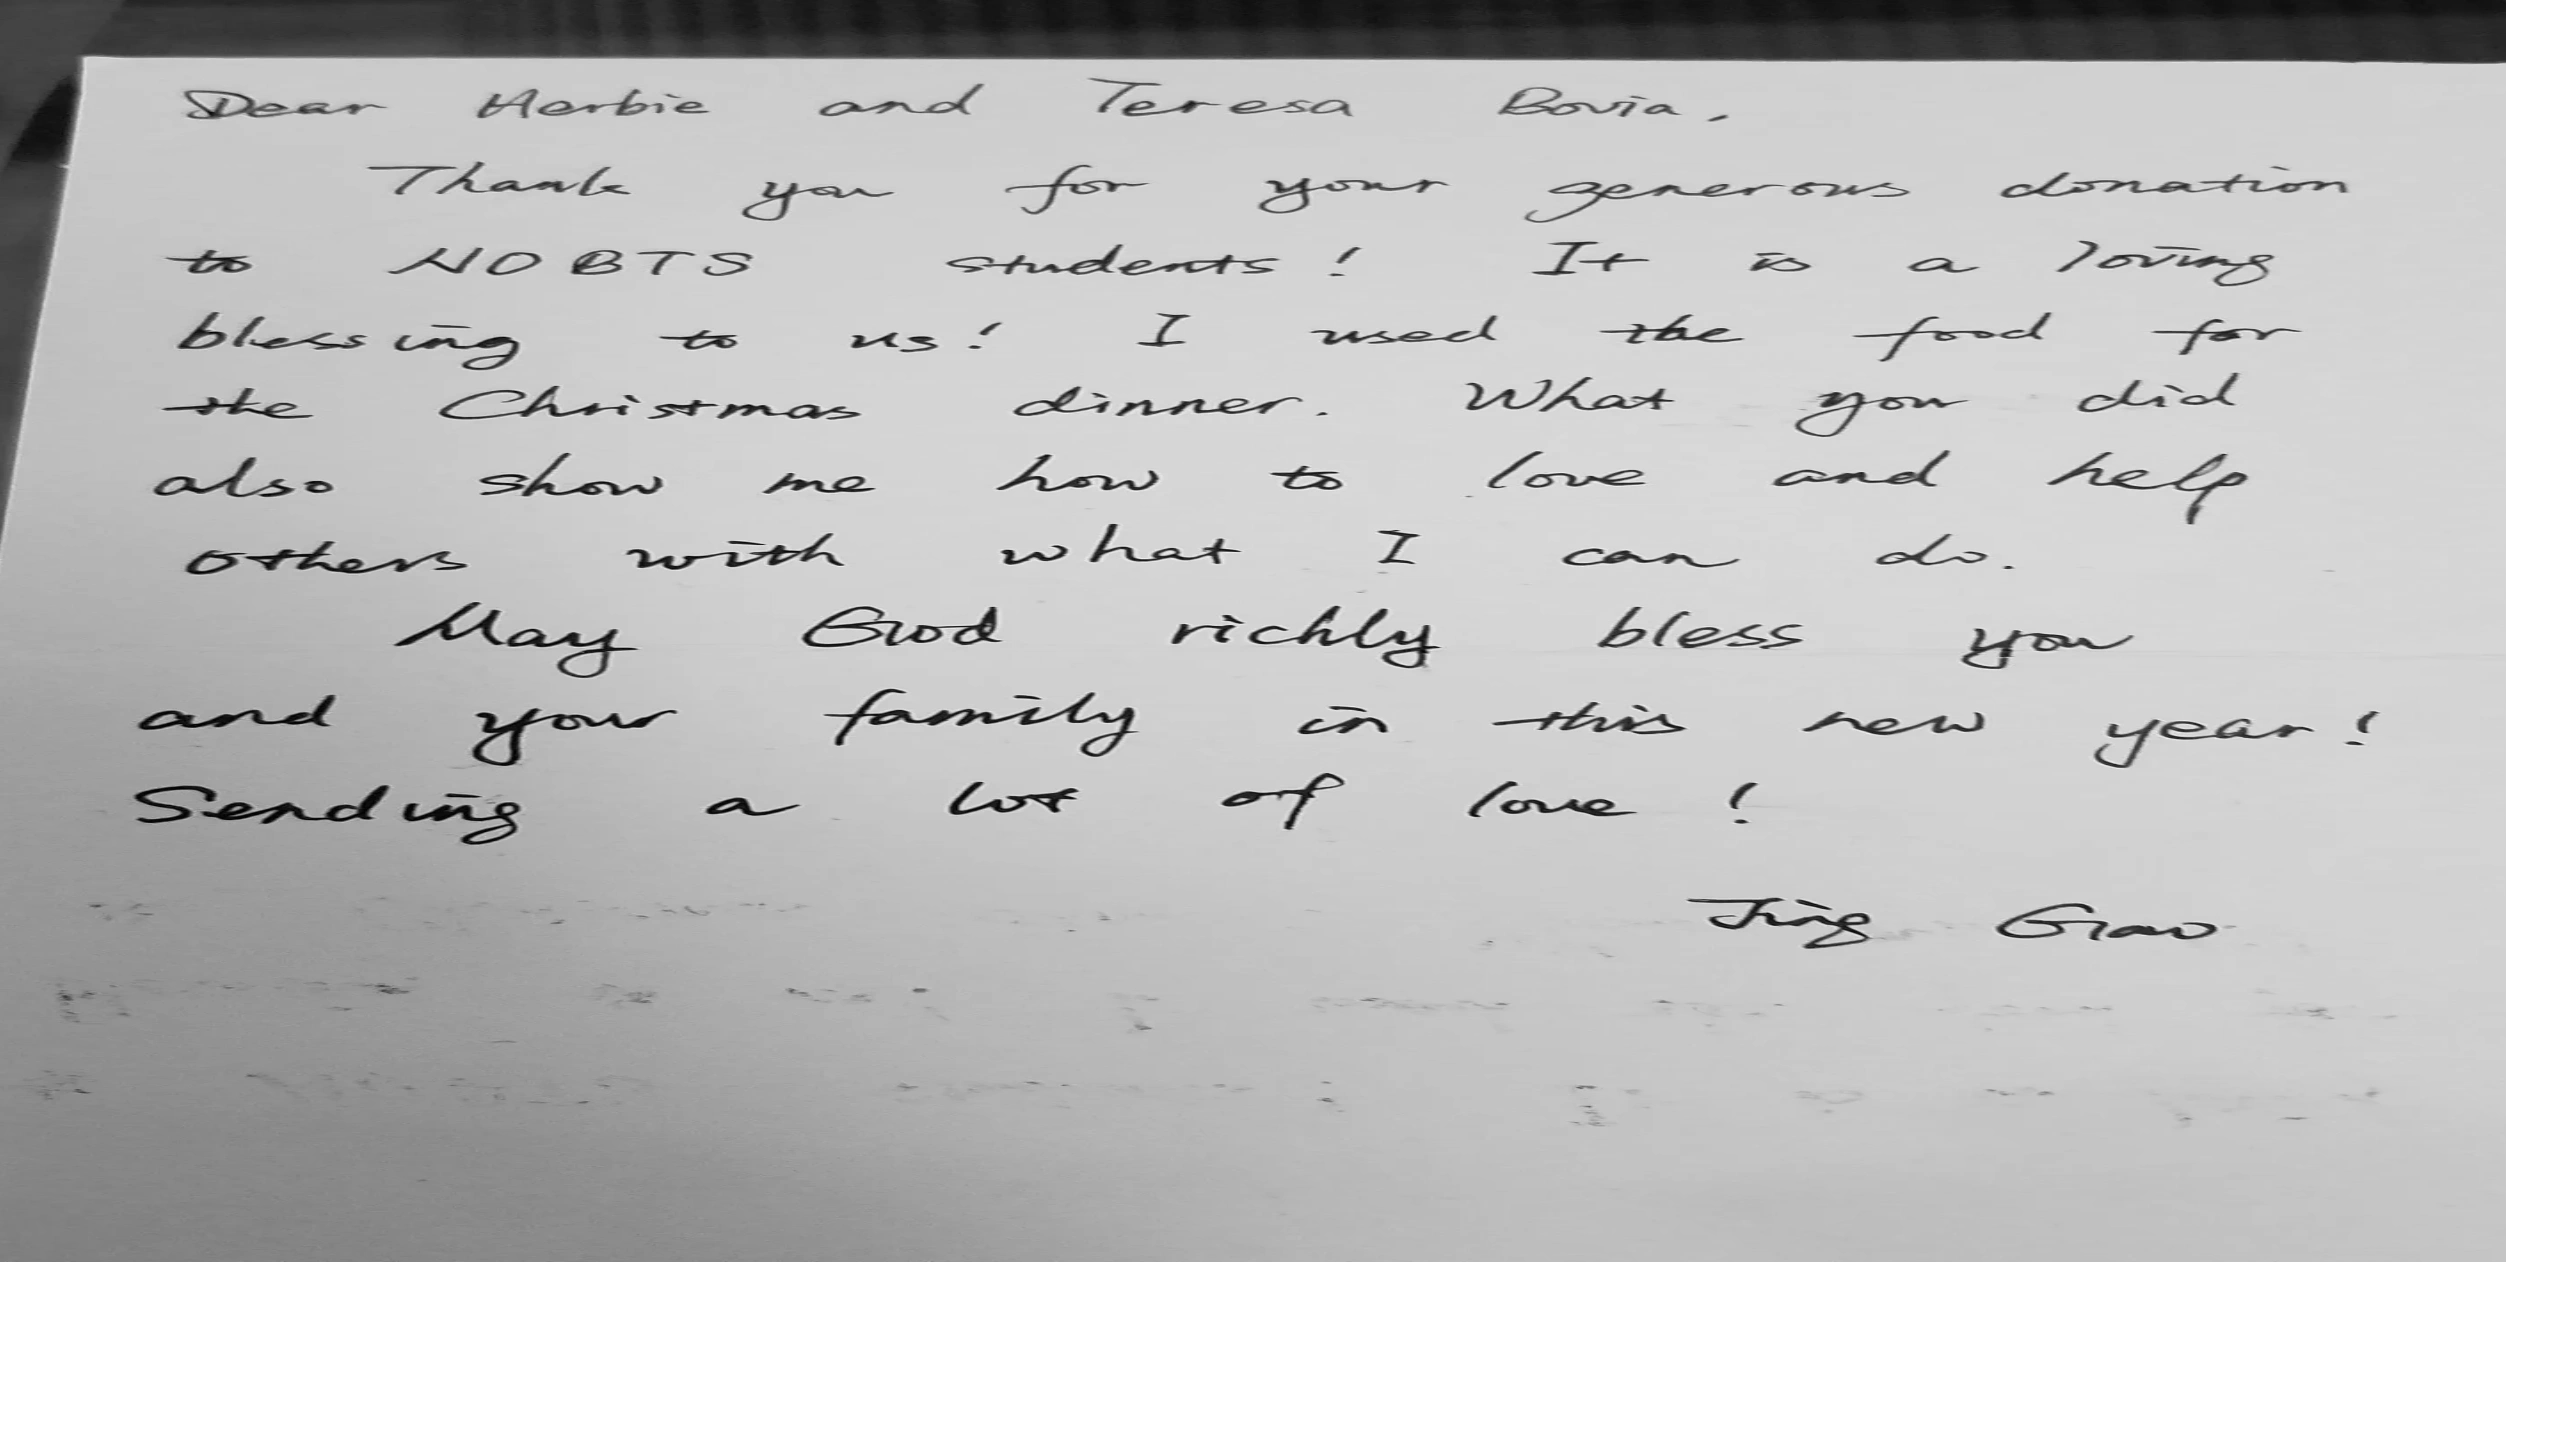 Dear Herbie and Teresa Bovia,
Thank you for your generous donation
to NOBTS students! It is a loving
blessing to us! I used the food for
the Christmas dinner. What you did
also show me how to love and help
others with what I can do.
May God richly bless you
and your family in this new year!
Sending a lot of love!
Jing Gao